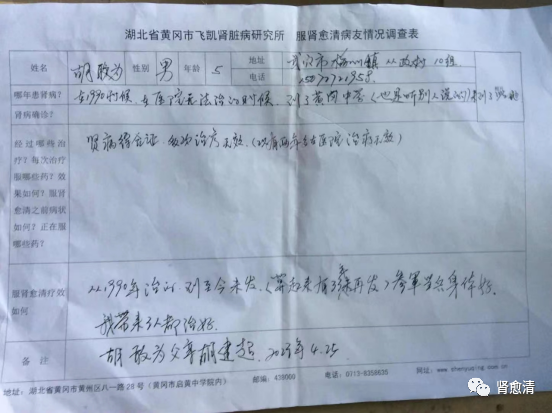 湖北省黄冈市飞凯肾脏病研究所 服肾愈清病友情况调查表
姓名 胡敢为 性别 男 年龄 5 地址 武穴市梅川镇从政村10组
电话
哪年患肾病? 在1990时候,在医院无法治的时候,到了黄冈中医(也是听别人说的)
肾病确诊?
经过哪些治 肾病综合证 多次治疗无效.(以前西药去医院治疗无效)
疗?每次治疗
服哪些药?效
果如何?服肾
愈清之前病状
如何?正在服
哪些药?
服肾愈清疗效 从1990年治好 到至今未发.(算起来有3年再发)参军当兵身体好.
如何 我带来3人都治好.
备注 胡敢为父亲胡建超. 4.25
地址:湖北省黄冈市黄州区八一路28号(黄冈市启黄中学院内) 邮编:438000 电话:0713-8358635 网址:www.shenyuqing.com.cn
肾愈清